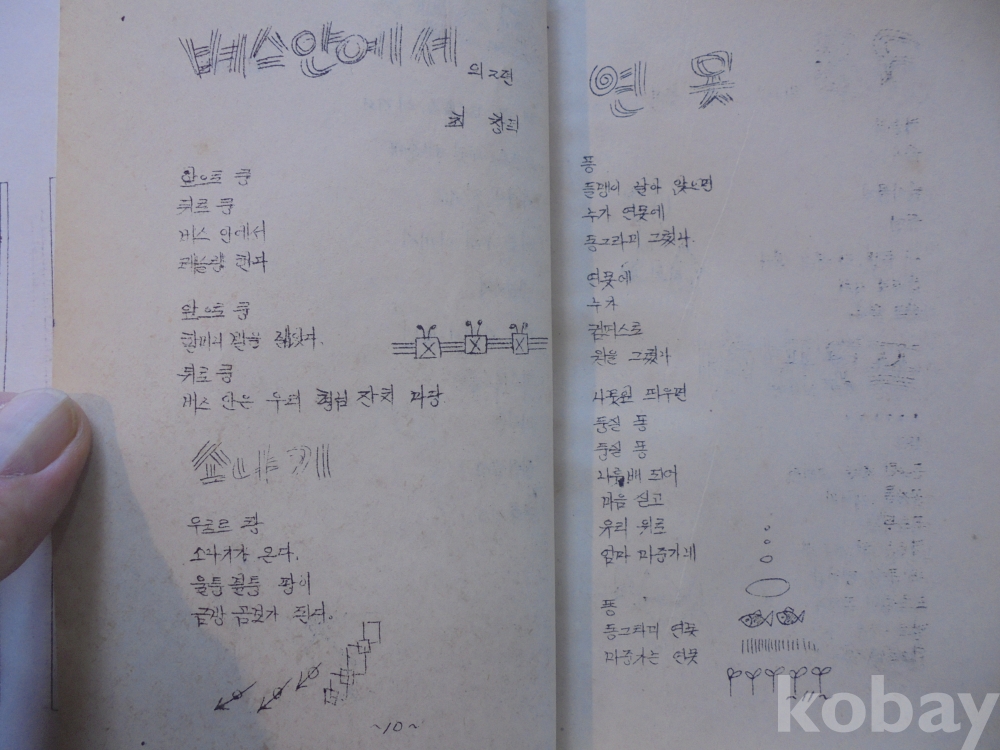 버스안에서
외 2편
최
앞으로 쿵
뒤로 쿵
버스 안에서
앞으로 쿵
뒤로 쿵
버스 안은 우리 잔치 마당
소나기
우르르 쾅
소나기가 온다.
울퉁불퉁 땅이
곰보가 된다.
~10~
연못
퐁
돌맹이 날아 앉으면
누가 연못에
동그라미 그렸나.
연못에
누가
콤파스로
원을 그렸나
나뭇잎 띄우면
둥실 퐁
둥실 퐁
나룻배 되어
마음 싣고
유리 위로
엄마 마중가네
퐁
동그라미 연못
마중가는 연못
~11~
kobay